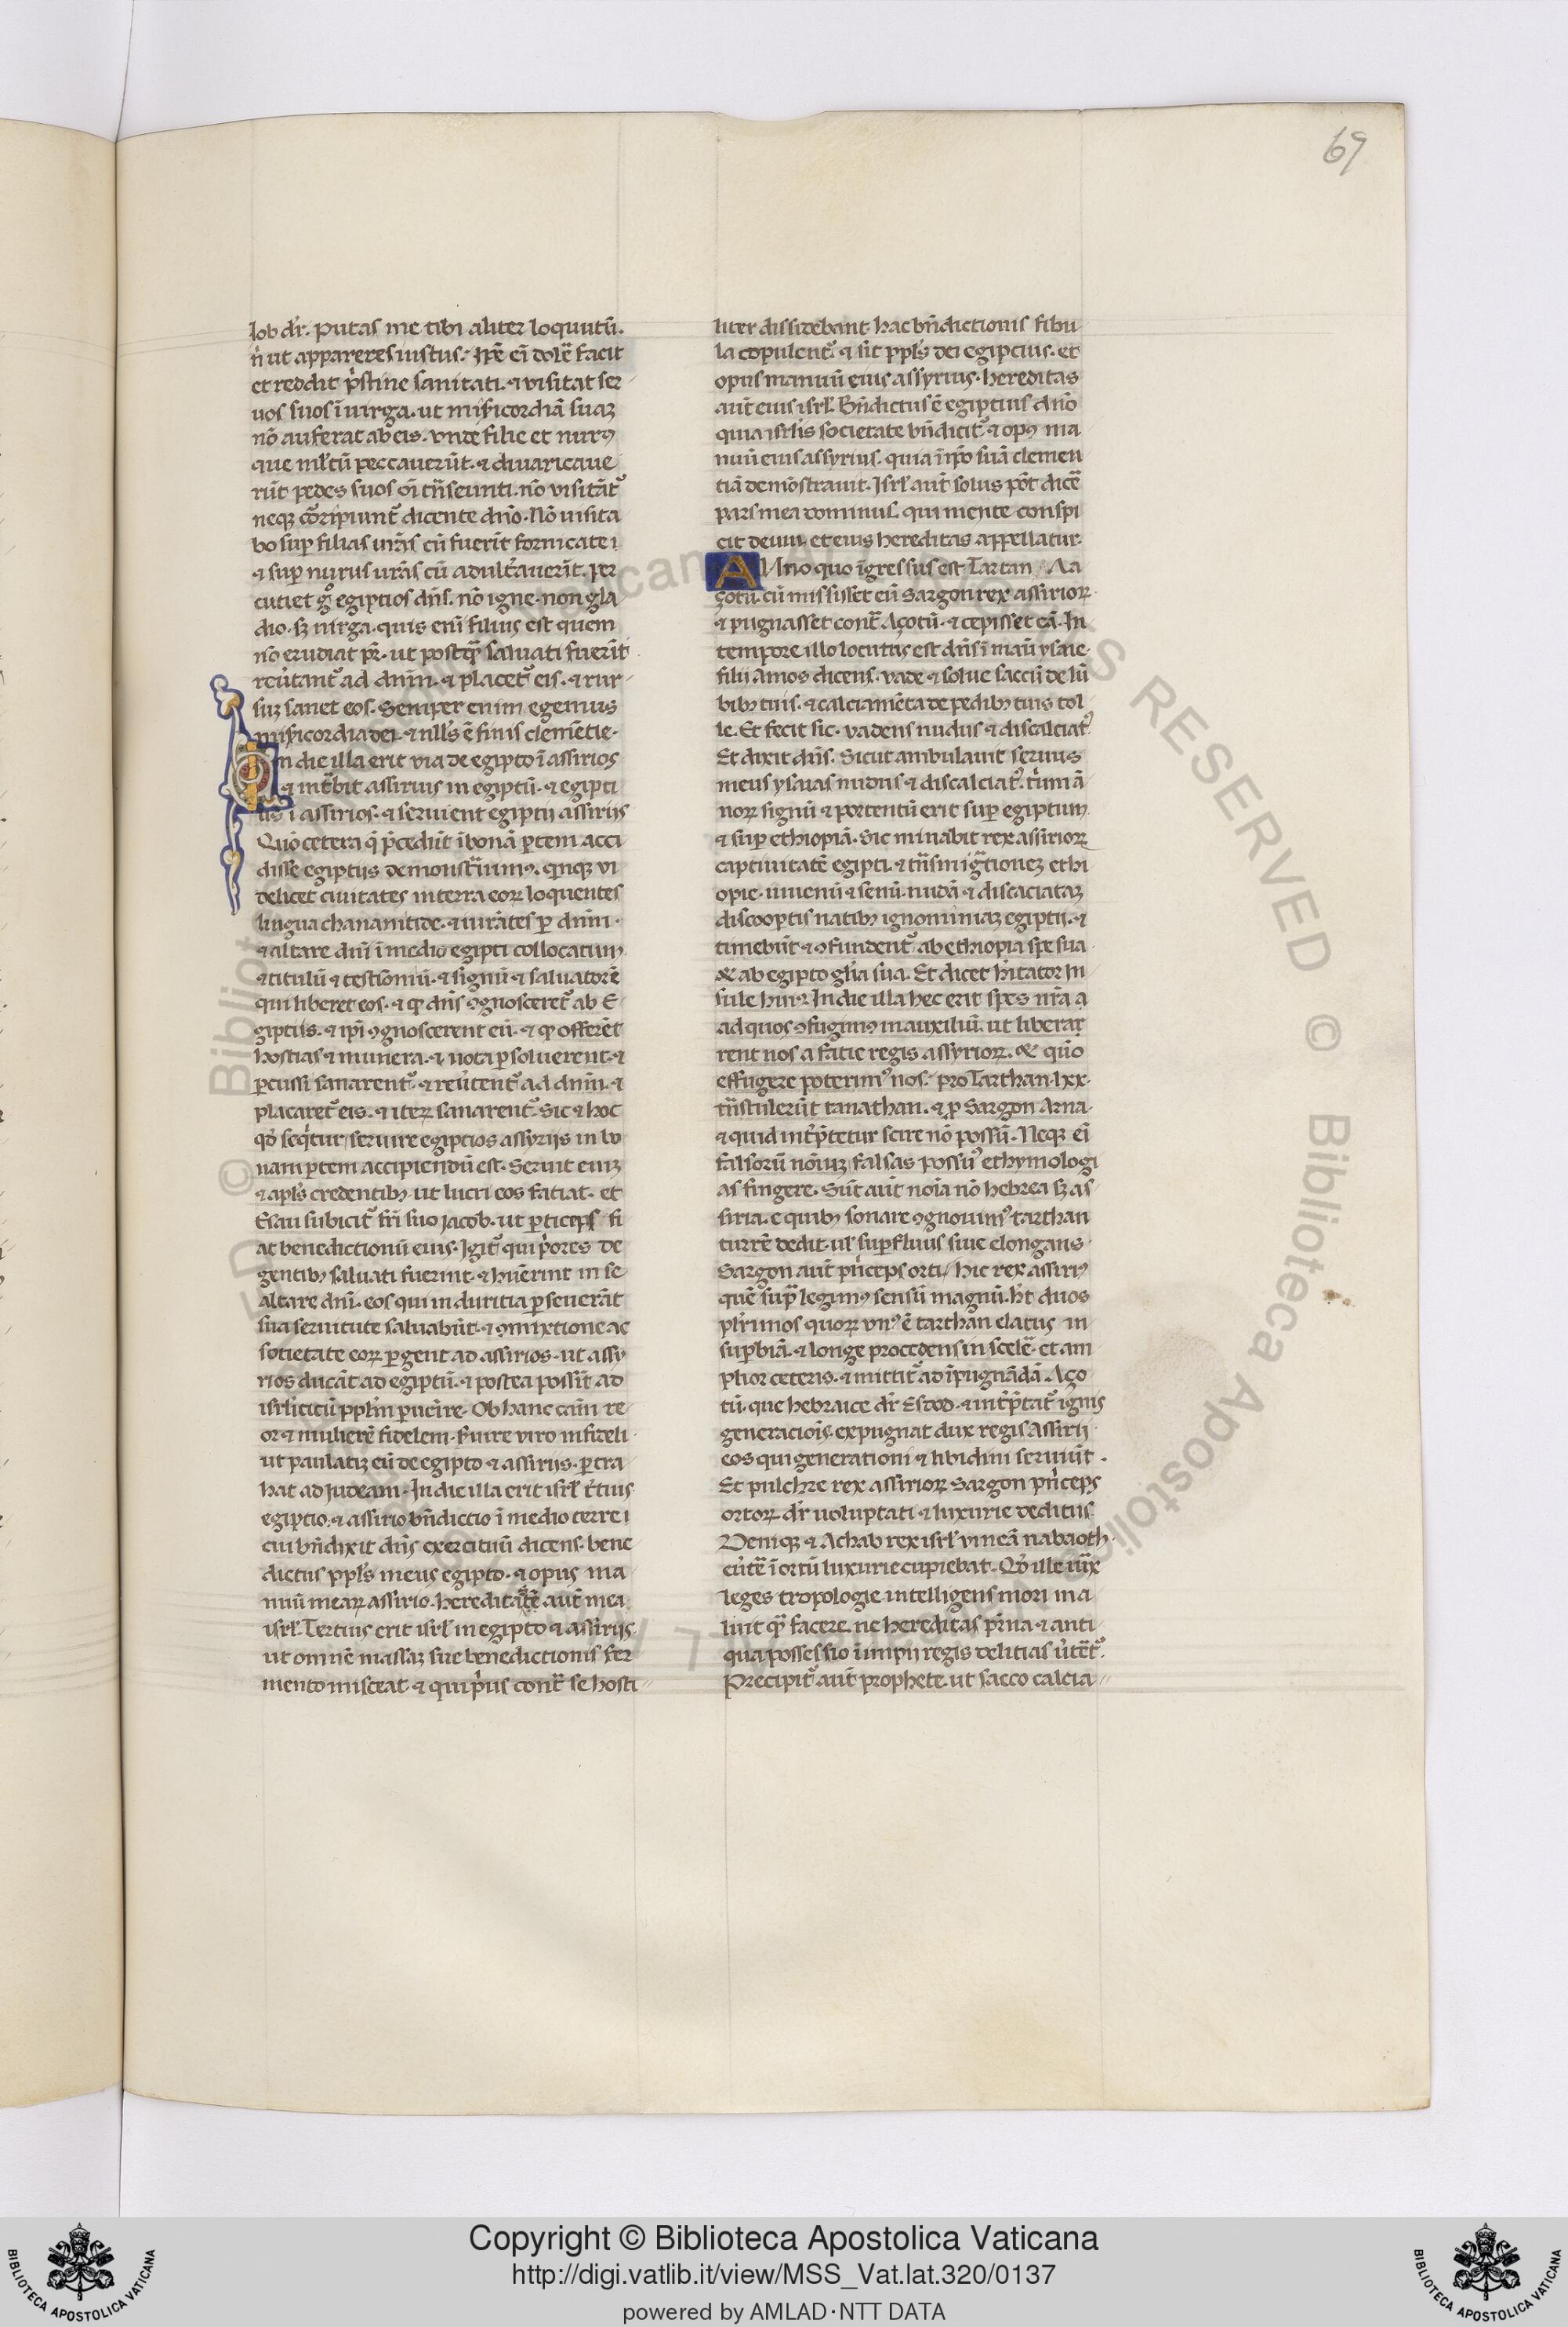 69
Iob dr̄. putas me tibi aliter loquutū.
n̄ ut appareres iustus. Ip̄e ei dolē facit
et reddit p̄stine sanitati. ⁊ visitat ser
uos suos ī uirga. ut mīs̄icordiā suaꝫ
nō auferat ab eis. vnde filie et nurꝰ
que ml̄tū peccauerūt. ⁊ diuaricaue
rūt pedes suos oī trāseunti. nō visitāt᷑
neqꝫ cōripiunt᷑ dicente dn̄o. Nō uisita
bo suꝑ filias ur̄as cū fuerīt fornicate ı
⁊ suꝑ nurus ur̄as cū adult̄auerīt. ꝑcr
cutiet gͦ egiptios dn̄s. nō igne. non gla
dio. sꝫ uirga. quis enī filius est quem
nō erudiat pr̄. ut postqꝫ saluati fuerīt
reūtant᷑ ad dn̄m. ⁊ placet᷑ eis. ⁊ rur
suꝫ sanet eos. Semper enim egemus
mis̄icordia dei. ⁊ nll̄s ē finis clemētie.
In die illa erit via de egipto ī assirios
⁊ intͣbit assirius in egiptū. ⁊ egipti
us ī assirios. ⁊ seruient egiptii assirijs
Quō cetera q̄ p̄cedūt ī bonā ꝑtem acci
disse egiptijs demonstͣuimꝰ. qnqꝫ vi
delicet ciuitates in terra eoꝝ loquentes
lingua chananitide. ⁊ iurātes ꝑ dn̄m.
⁊ altare dn̄i ī medio egipti collocatum
⁊ titulū ⁊ testīoniū. ⁊ signū ⁊ saluatorē
qui liberet eos. ⁊ ꝙ dn̄s ꝯgnosceret᷑ ab E
giptiis. ⁊ ip̄i ꝯgnoscerent eū. ⁊ ꝙ offerēt
hostias ⁊ munera. ⁊ uota ꝑsoluerent. ⁊
ꝑcussi sanarent᷑. ⁊ reūtent᷑ ad dn̄m. ⁊
placaret᷑ eis. ⁊ iteꝝ sanarent᷑. Sic ⁊ hoc
qđ seq̄tur seruire egiptios assyrijs in bo
nam ꝑtem accipiendū est. Seruit eniꝫ
⁊ apl̄s credentibꝫ ut lucri eos fatiat. et
Esau subicit᷑ fr̄i suo Jacob. ut ꝑticeps fi
at benedictionū eius. Igit᷑ qui p̄ores de
gentibꝫ saluati fuerint. ⁊ hūerint in se
altare dn̄i. eos qui in duritia ꝑseuerāt
sua seruitute saluabūt. ⁊ ꝯmixtione ac
sotietate eoꝝ ꝑgent ad assirios. ut assy
rios ducāt ad egiptū. ⁊ postea possīt ad
isrl̄iticū ppl̄m ꝑuēire. Ob hanc cām re
or ⁊ mulierē fidelem fuire viro infideli.
ut paulatiꝫ eū de egipto ⁊ assirijs ꝑtra
hat ad Judeam. In die illa erit isrl̄ t̄tius
egiptio. ⁊ assirio bn̄dictio ī medio terre ı
cui bn̄dixit dn̄s exercituū dicens. bene
dictus ppl̄s meus egipto. ⁊ opus ma
nuū meaꝝ assirio. hereditatē aut̄ mea
isrl̄. Tertius erit isrl̄ in egipto ⁊ assirijs.
ut omnē massaꝫ sue benedictionis fer
mento misceat. ⁊ qui p̄us contͣ se hosti
liter dissidebant hac bn̄dictionis fibu
la copulent᷑. ⁊ sit ppl̄s dei egiptius. et
opus manuū eius assyrius. hereditas
aut̄ eius isrl̄. Bn̄dictus ē egiptius dn̄o
quia isrl̄is societate bn̄dicit᷑. ⁊ opꝰ ma
nuū eius assyrius. quia ī ip̄o suā clemen
tiā demōstrauit. Isrl̄ aut̄ solus pōt dicē
pars mea dominus. qui mente conspi
cit deum et eius hereditas appellatur.
ANno quo īgressus est Tartan Aa
çotū. cū misisset eū Sargon rex assirioꝝ
⁊ pugnasset contͣ Açotū. ⁊ cepisset eā. In
tempore illo locutus est dn̄s ī manū ysaie
filii Amos dicens. vade ⁊ solue saccū de lū
bibꝫ tuis. ⁊ calciamēta de pedibꝫ tuis tol
le. Et fecit sic. vadens nudus ⁊ discalciatꝰ
Et dixit dn̄s. Sicut ambulauit seruus
meus ysaias nudus ⁊ discalciatꝰ. triū ā
noꝝ signū ⁊ portentū erit suꝑ egiptum
⁊ suꝑ ethiopiā. Sic minabit rex assirioꝝ
captiuitatē egipti. ⁊ trāsmigͣtioneꝫ ethi
opie. iuuenū ⁊ senū. nudā ⁊ discaciataꝫ
discooꝑtis natibꝫ ignominiaꝫ egiptii. ⁊
timebūt ⁊ ꝯfundent᷑ ab ethiopia spe sua
& ab egipto gl̄ia sua. Et dicet hītator in
sule huiꝰ. In die illa hec erit spes nr̄a a
ad quos ꝯfugimꝰ in auxiliū. ut liberar
rent nos a fatie regis assyrioꝝ. & quō
effugere poterimꝰ nos. pro Tarthan. lxx.
trāstulerūt tanathan. ⁊ ꝓ Sargon Arna.
⁊ quid int̄p̄tetur scire nō possū. Neqꝫ eī
falsorū nōmīꝫ falsas possūꝰ ethymologi
as fingere. Sūt aut̄ noīa nō hebrea sꝫ as
siria. e quibꝫ sonare ꝯgnouimꝰ tarthan
turrē dedit. ul̄ suꝑfluus siue elongans.
Sargon aut̄ p̄nceps orti. Hic rex assiriꝰ
quē supͣ legimꝰ sensū magnū. h̄t duos
plīmos quoꝝ vnꝰ ē tarthan elatus in
suꝑbiā. ⁊ longe procedens in scelē. et am
plior ceteris. ⁊ mittit᷑ ad īpugnādā Aço
tū. que hebraice dr̄ Esdod. ⁊ int̄p̄tat᷑ ignis
generacīois. expugnat dux regis Assirii
eos qui generationi ⁊ libidini seruiūt.
Et pulchre rex assirioꝝ Sargon p̄nceps
ortoꝝ dr̄ uoluptati ⁊ luxurie deditus.
Deniqꝫ ⁊ Achab rex isrl̄ vineā nabaoth.
eūtē ī ortū luxurie cupiebat. Qđ ille iuͣx
leges tropologie intelligens mori ma
luit qͣ facere. ne hereditas pr̄na. ⁊ anti
qua possessio ī impii regis delitias ūtēt᷑.
Precipit᷑ aut̄ prophete. ut sacco calcia
Copyright © Biblioteca Apostolica Vaticana
http://digi.vatlib.it/view/MSS_Vat.lat.320/0137
powered by AMLAD·NTT DATA